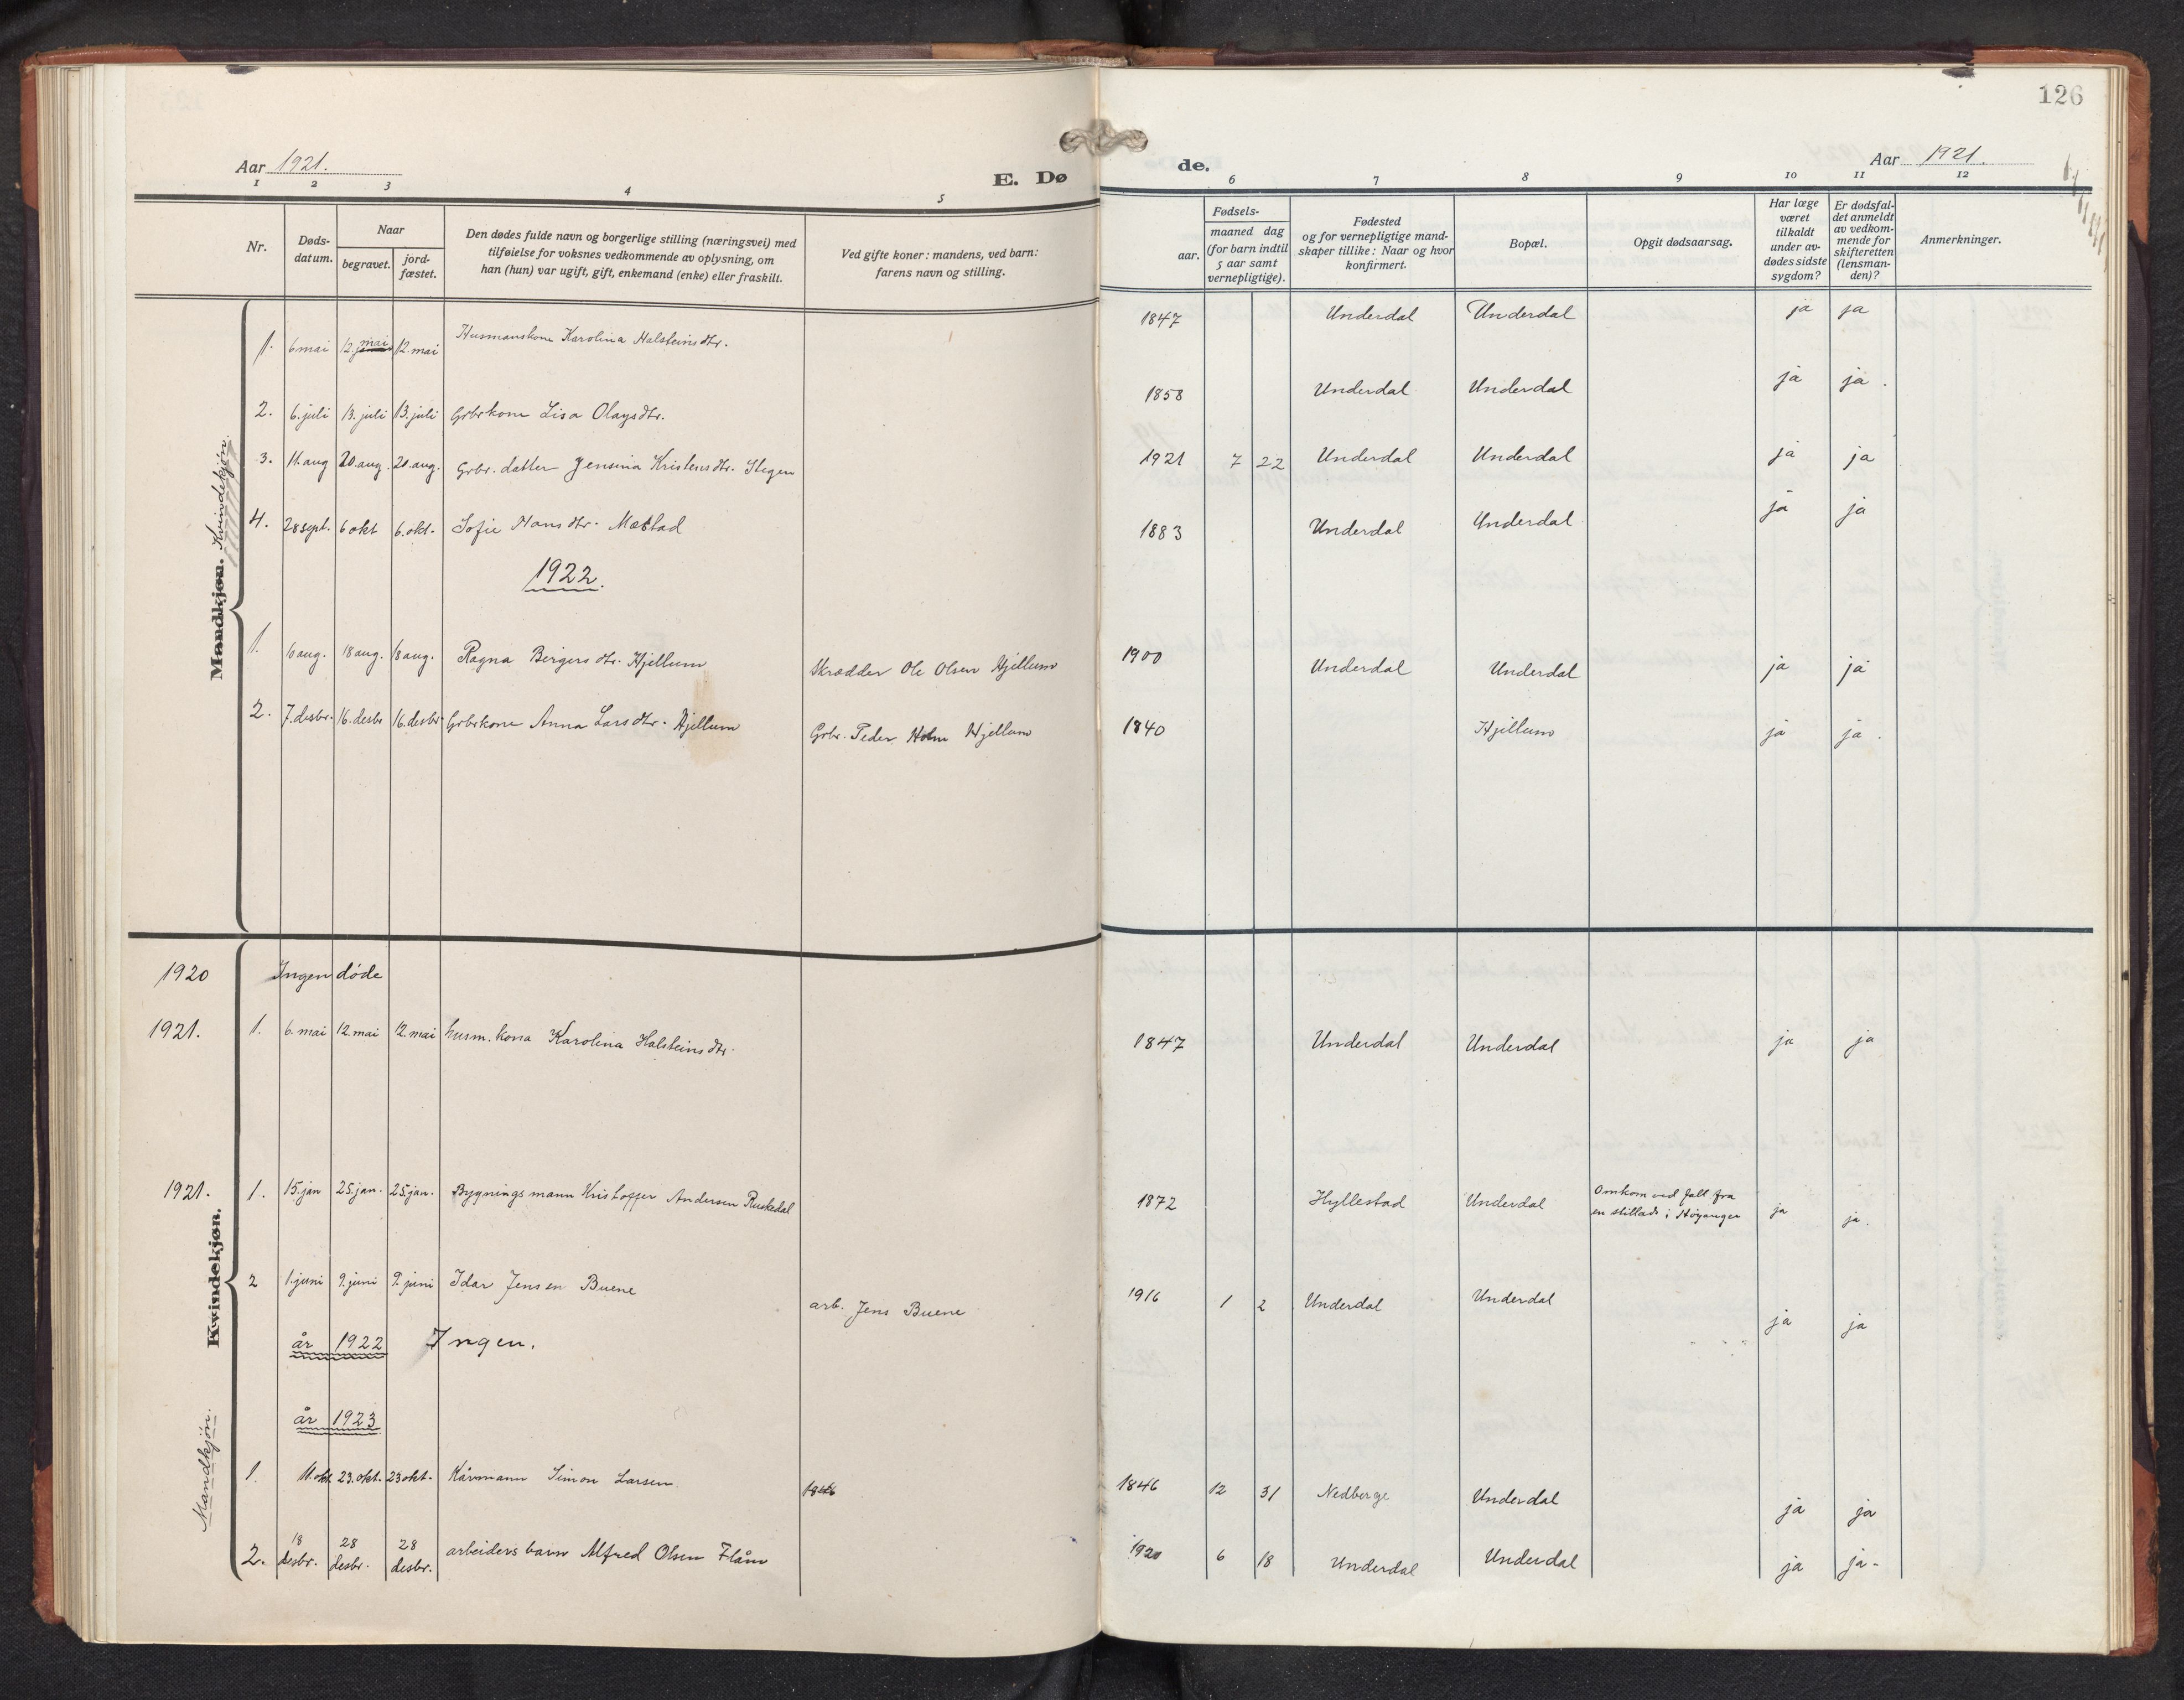 126
Aar 1921.
E. Dø
de.
Aar 1921.
1 2 3 4 5 6 7 8 9 10 11 12
Nr.
Døds-
datum.
Naar
begravet.
jord-
fæstet.
Den dødes fulde navn og borgerlige stilling (næringsvei) med
tilføielse for voksnes vedkommende av oplysning, om
han (hun) var ugift, gift, enkemand (enke) eller fraskilt.
Ved gifte koner: mandens, ved barn:
farens navn og stilling.
Fødsels-
aar.
maaned dag
(for barn indtil
5 aar samt
vernepligtige).
Fødested
og for vernepligtige mand-
skaper tillike: Naar og hvor
konfirmert.
Bopæl.
Opgit dødsaarsag.
Har læge
været
tilkaldt
under av-
dødes sidste
sygdom?
Er dødsfal-
det anmeldt
av vedkom-
mende for
skifteretten
(lensman-
den)?
Anmerkninger.
Mandkjøn. Kvindekjøn.
1. 6 mai 12. mai 12. mai Husmanskone Karolina Halsteinsdtr. 1847 Underdal Underdal ja ja
2. 6. juli 13. juli 13. juli Grbrkone Lisa Olavsdtr. 1858 Underdal Underdal ja ja.
3. 11. aug 20. aug. 20. aug. Grbr. datter Jensina Kristensdtr. Stegen 1921 7 22 Underdal Underdal ja ja
4. 28 sept. 6 okt 6. okt. Sofie Hansdtr. Mæstad 1883 Underdal Underdal ja ja
1922.
1. 6 aug. 18 aug. 18 aug. Ragna Bergersdtr. Hjellum Skrædder Ole Olsen Hjellum 1900 Underdal Underdal ja ja
2. 7. desbr. 16. desbr 16. desbr Grbrkone Anna Larsdtr. Hjellum Grbr. Peder Hjellum 1840 Hjellum ja ja.
Kvindekjøn.
Mandkjøn.
1920 Ingen døde
1921. 1. 6. mai 12. mai 12. mai husm. kona Karolina Halsteinsdtr. 1847 Underdal Underdal ja ja
1921. 1. 15. jan 25. jan. 25. jan. Bygningsmann Kristoffer Andersen Ruskedal 1872 Hyllestad Underdal Omkom ved fall fra
en stillads i Høyanger ja ja.
2 1. juni 9. juni 9. juni Idar Jensen Buene arb. Jens Buene 1916 1 2 Underdal Underdal ja ja
år 1922 Ingen.
år 1923
1. 11. okt. 23. okt. 23 okt. Kårmann Simon Larsen. 1846 1846 12 31 Nedberge Underdal ja ja
2. 18 desbr. 28 desbr. 28 desbr. arbeidersbarn Alfred Olsen Flåm 1920 6 18 Underdal Underdal ja ja.